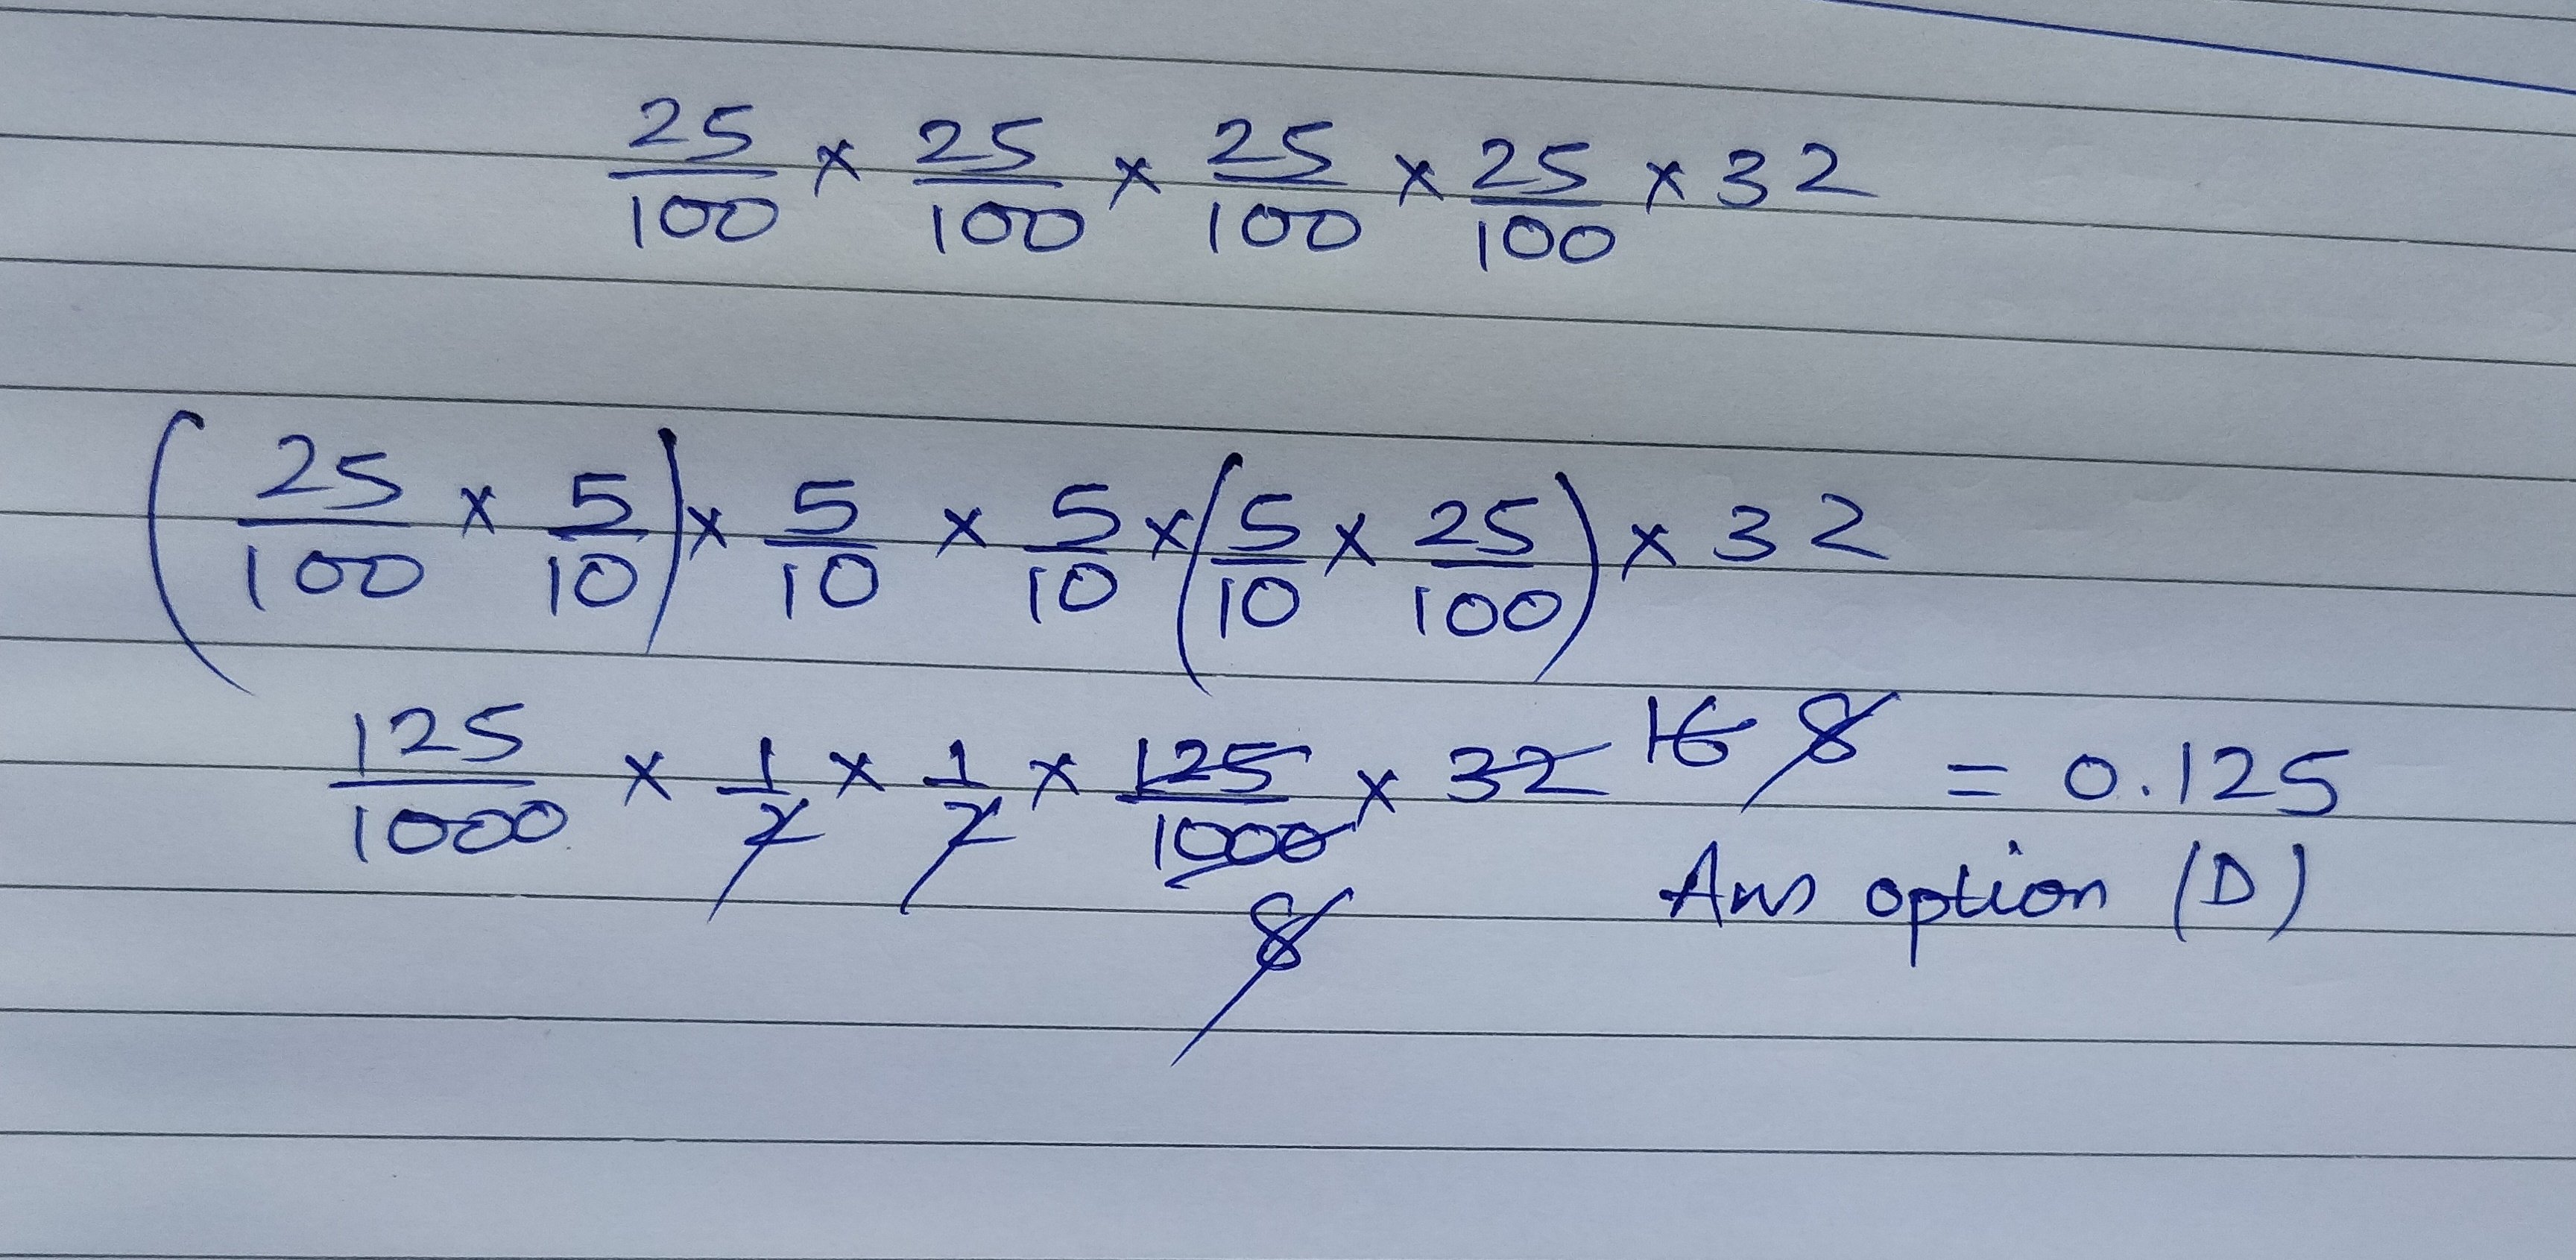 25/100 × 25/100 × 25/100 × 25/100 × 32
(25/100 × 5/10) × 5/10 × 5/10 × (5/10 × 25/100) × 32
125/1000 × 1/2 × 1/2 × 125/1000 × 32 16 8 = 0.125
8
Ans option (D)